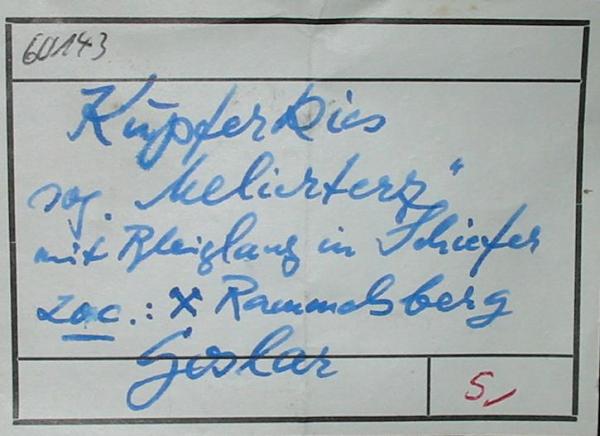 60143
KupferKies
sog. „Melierterz"
mit Bleiglanz in Schiefer
Loc.: ⚒ Rammelsberg
Goslar
5,